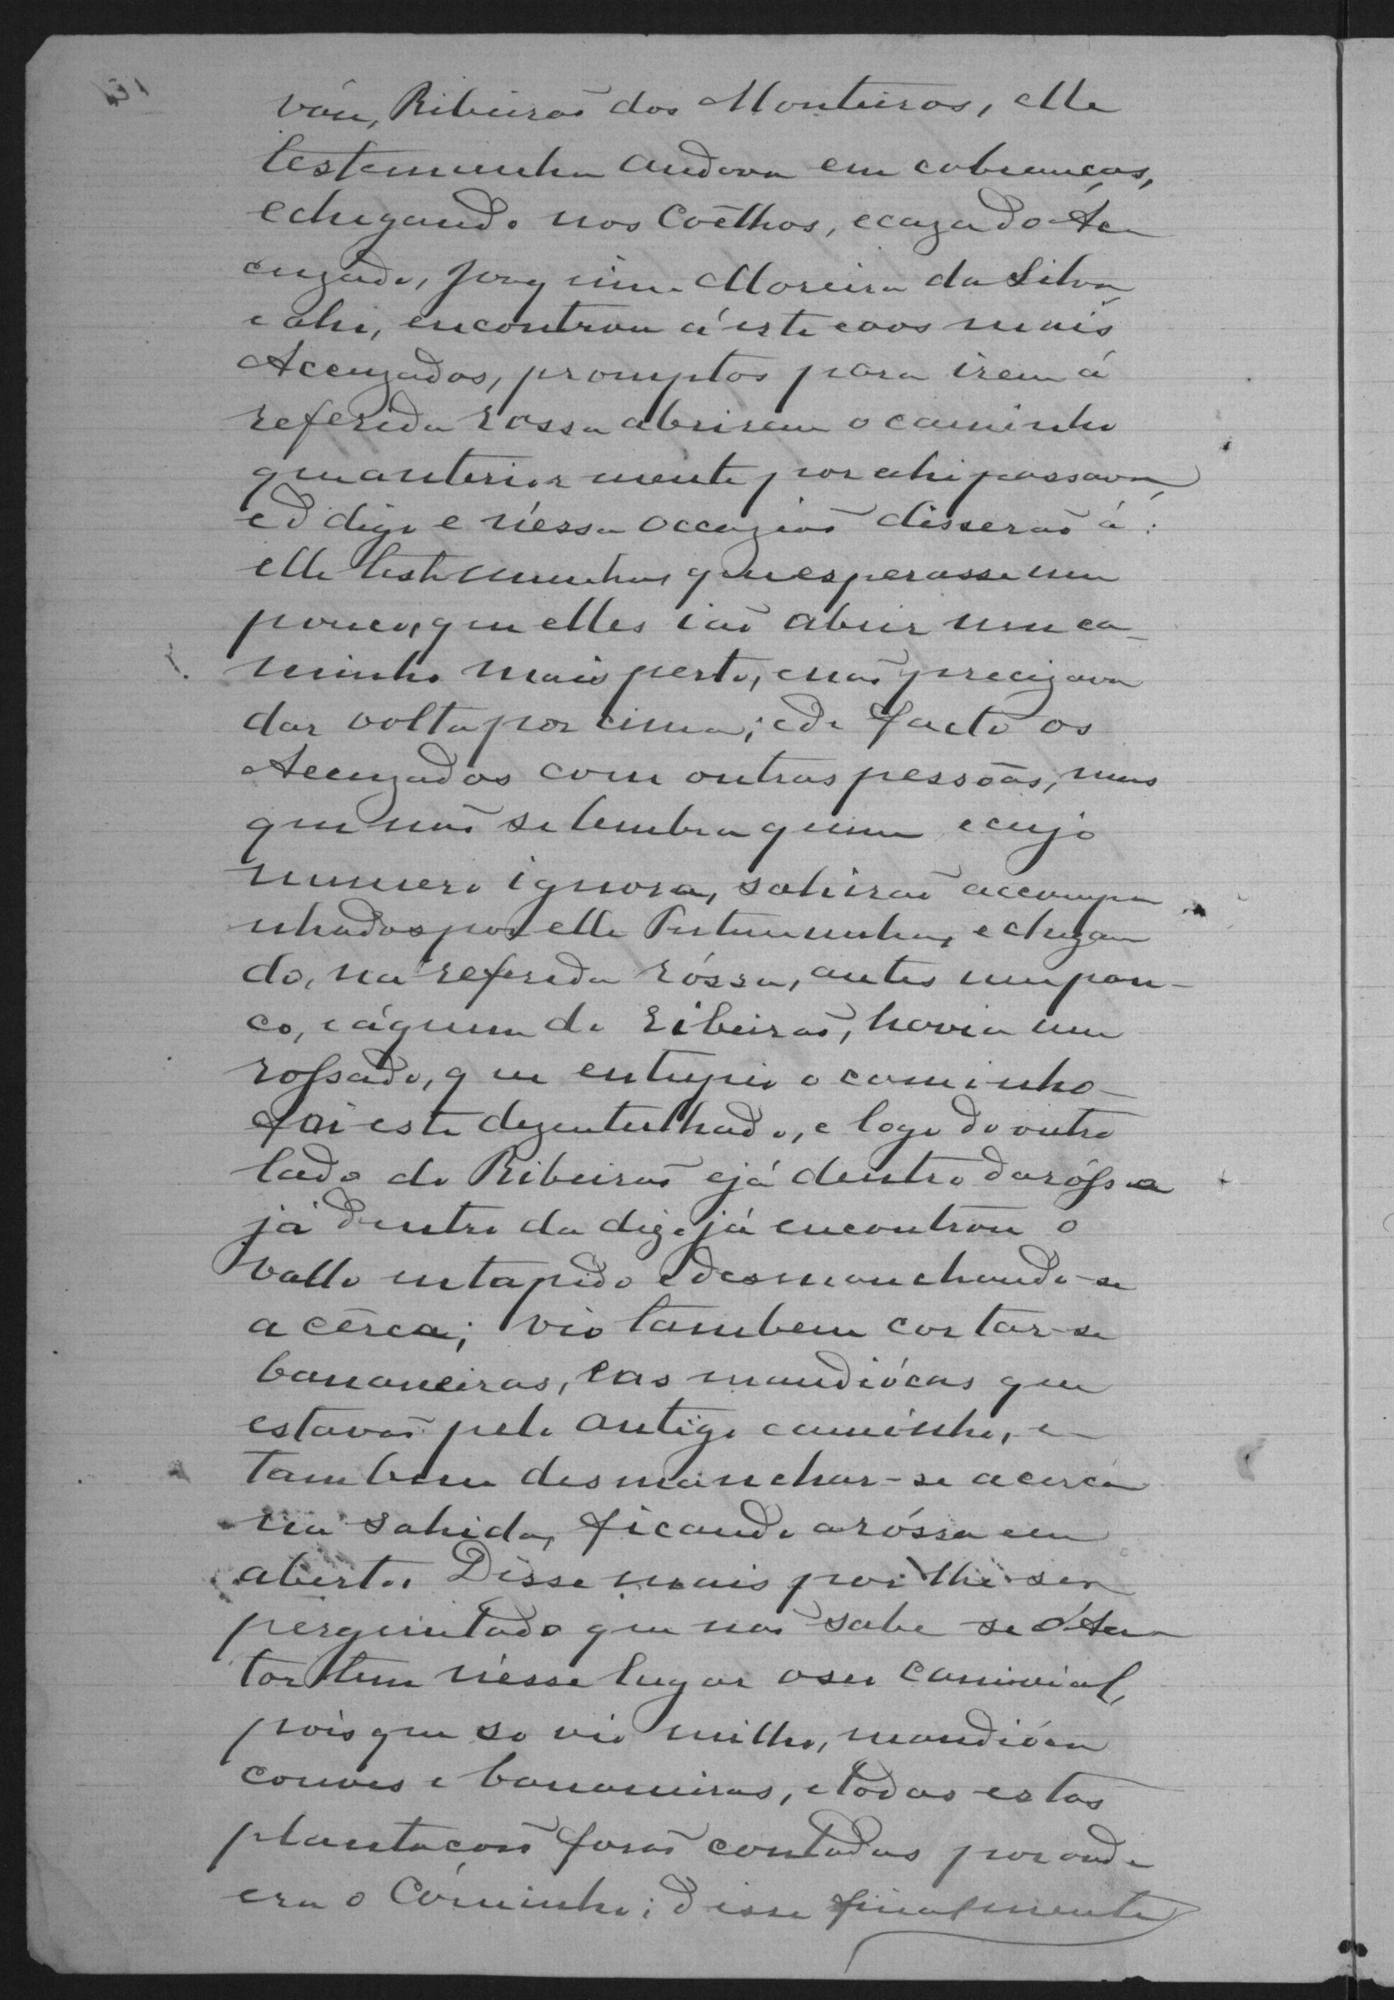 váu, Ribeirão dos Monteiros, elle
testemunha andava em cobranças,
echegando nos Coêlhos, ecaza do Ac
cuzado, Joaquim Moreira da Silva
e ahi, encontrou á este eaos mais
Accuzados, promptos para irem á
referida rossa abrirem o caminho
que anteriormente por ahi passava,
ed digo e n'essa occazião disserão á
elle testemunha, que esperasse um
pouco, que elles ião abrir um ca-
minho mais perto, enão precizava
dar volta por cima; ede facto os
Accuzados com outras pessôas, mas
que não se lembra quem ecujo
numero ignora, sahirão accompa
nhados por elle Testemunha, e chegan
do, na referida róssa, antes um pou-
co, eáquem do Ribeirão, havia um
rossado, que entupio o caminho
foi este dezentulhado, e logo do outro
lado do Ribeirão ejá dentro da róssa
já dentro da digo já encontrou o
vallo entapido edesmanchando-se
a cêrca; vio tambem cortar-se
bananeiras, eas mandiócas que
estavão pelo antigo caminho, e
tambem desmanchar-se acerca
na sahida, ficando a róssa em
aberto. Disse mais por lhe ser
perguntado que não sabe se o Au
tor tem n'esse lugar o seu canavial,
pois que so vio milho, mandióca
couves e bananeiras, etodas estas
plantacoēs forão contadas por onde
era o Cáminho; disse finalmente